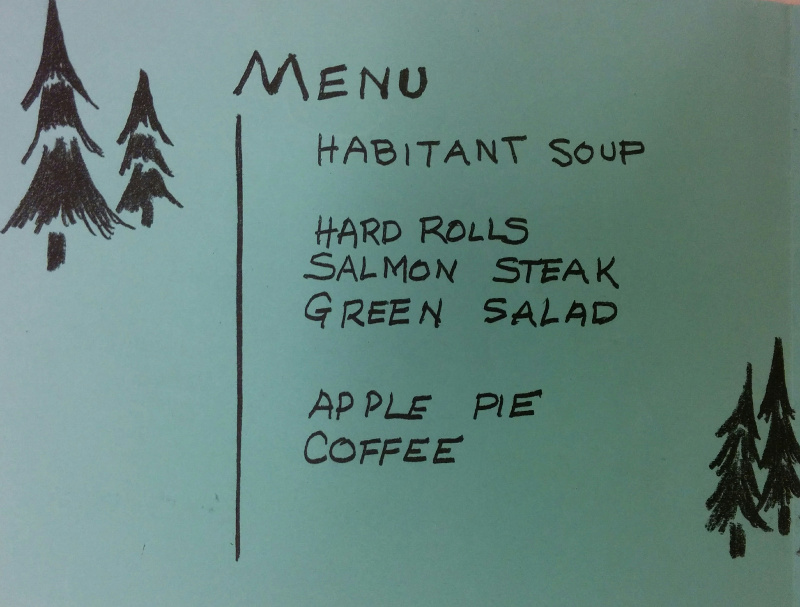 MENU
HABITANT SOUP
HARD ROLLS
SALMON STEAK
GREEN SALAD
APPLE PIE
COFFEE